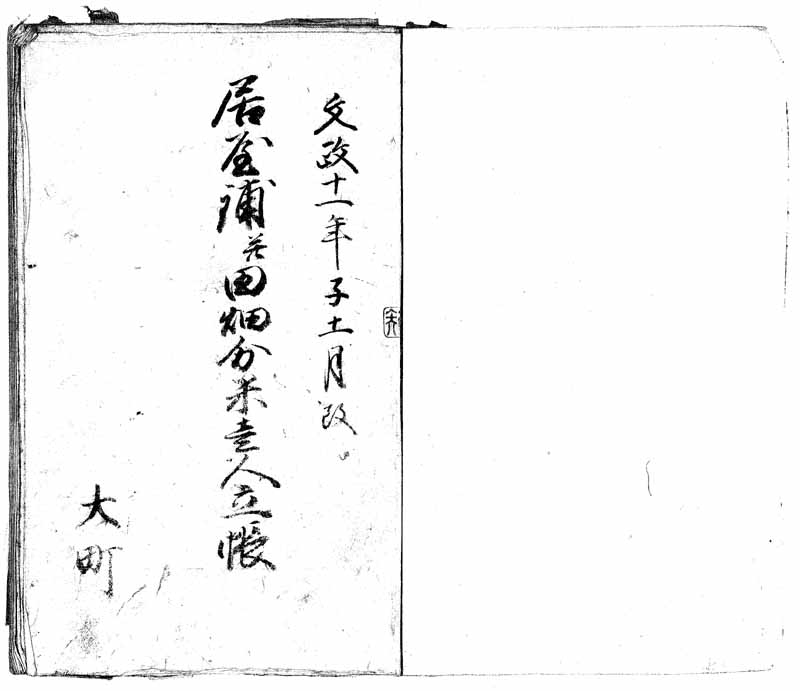 文政十一年子十一月改
居屋浦并田畑分米壱人立帳
大町